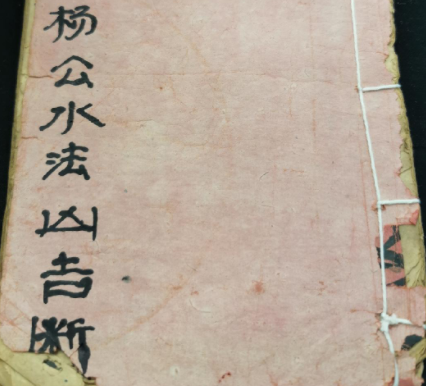 杨公水法凶吉断